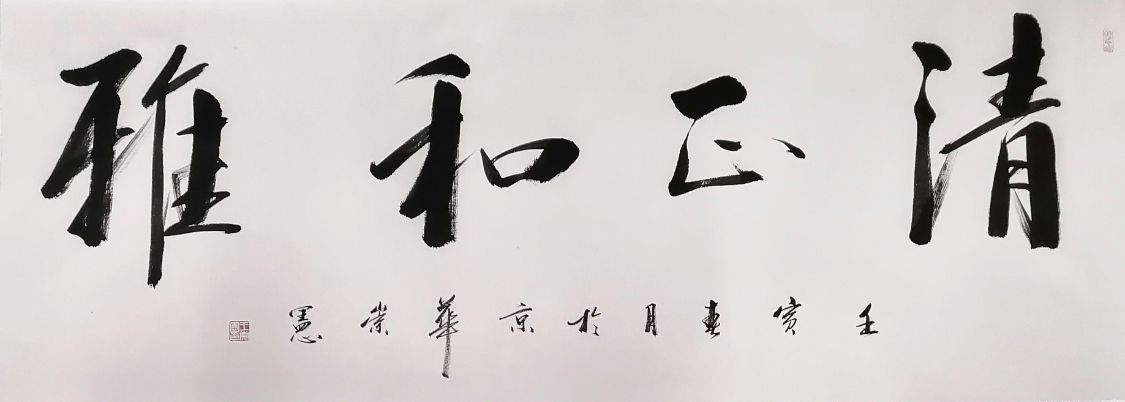 清正和雅
壬寅春月於京華憲